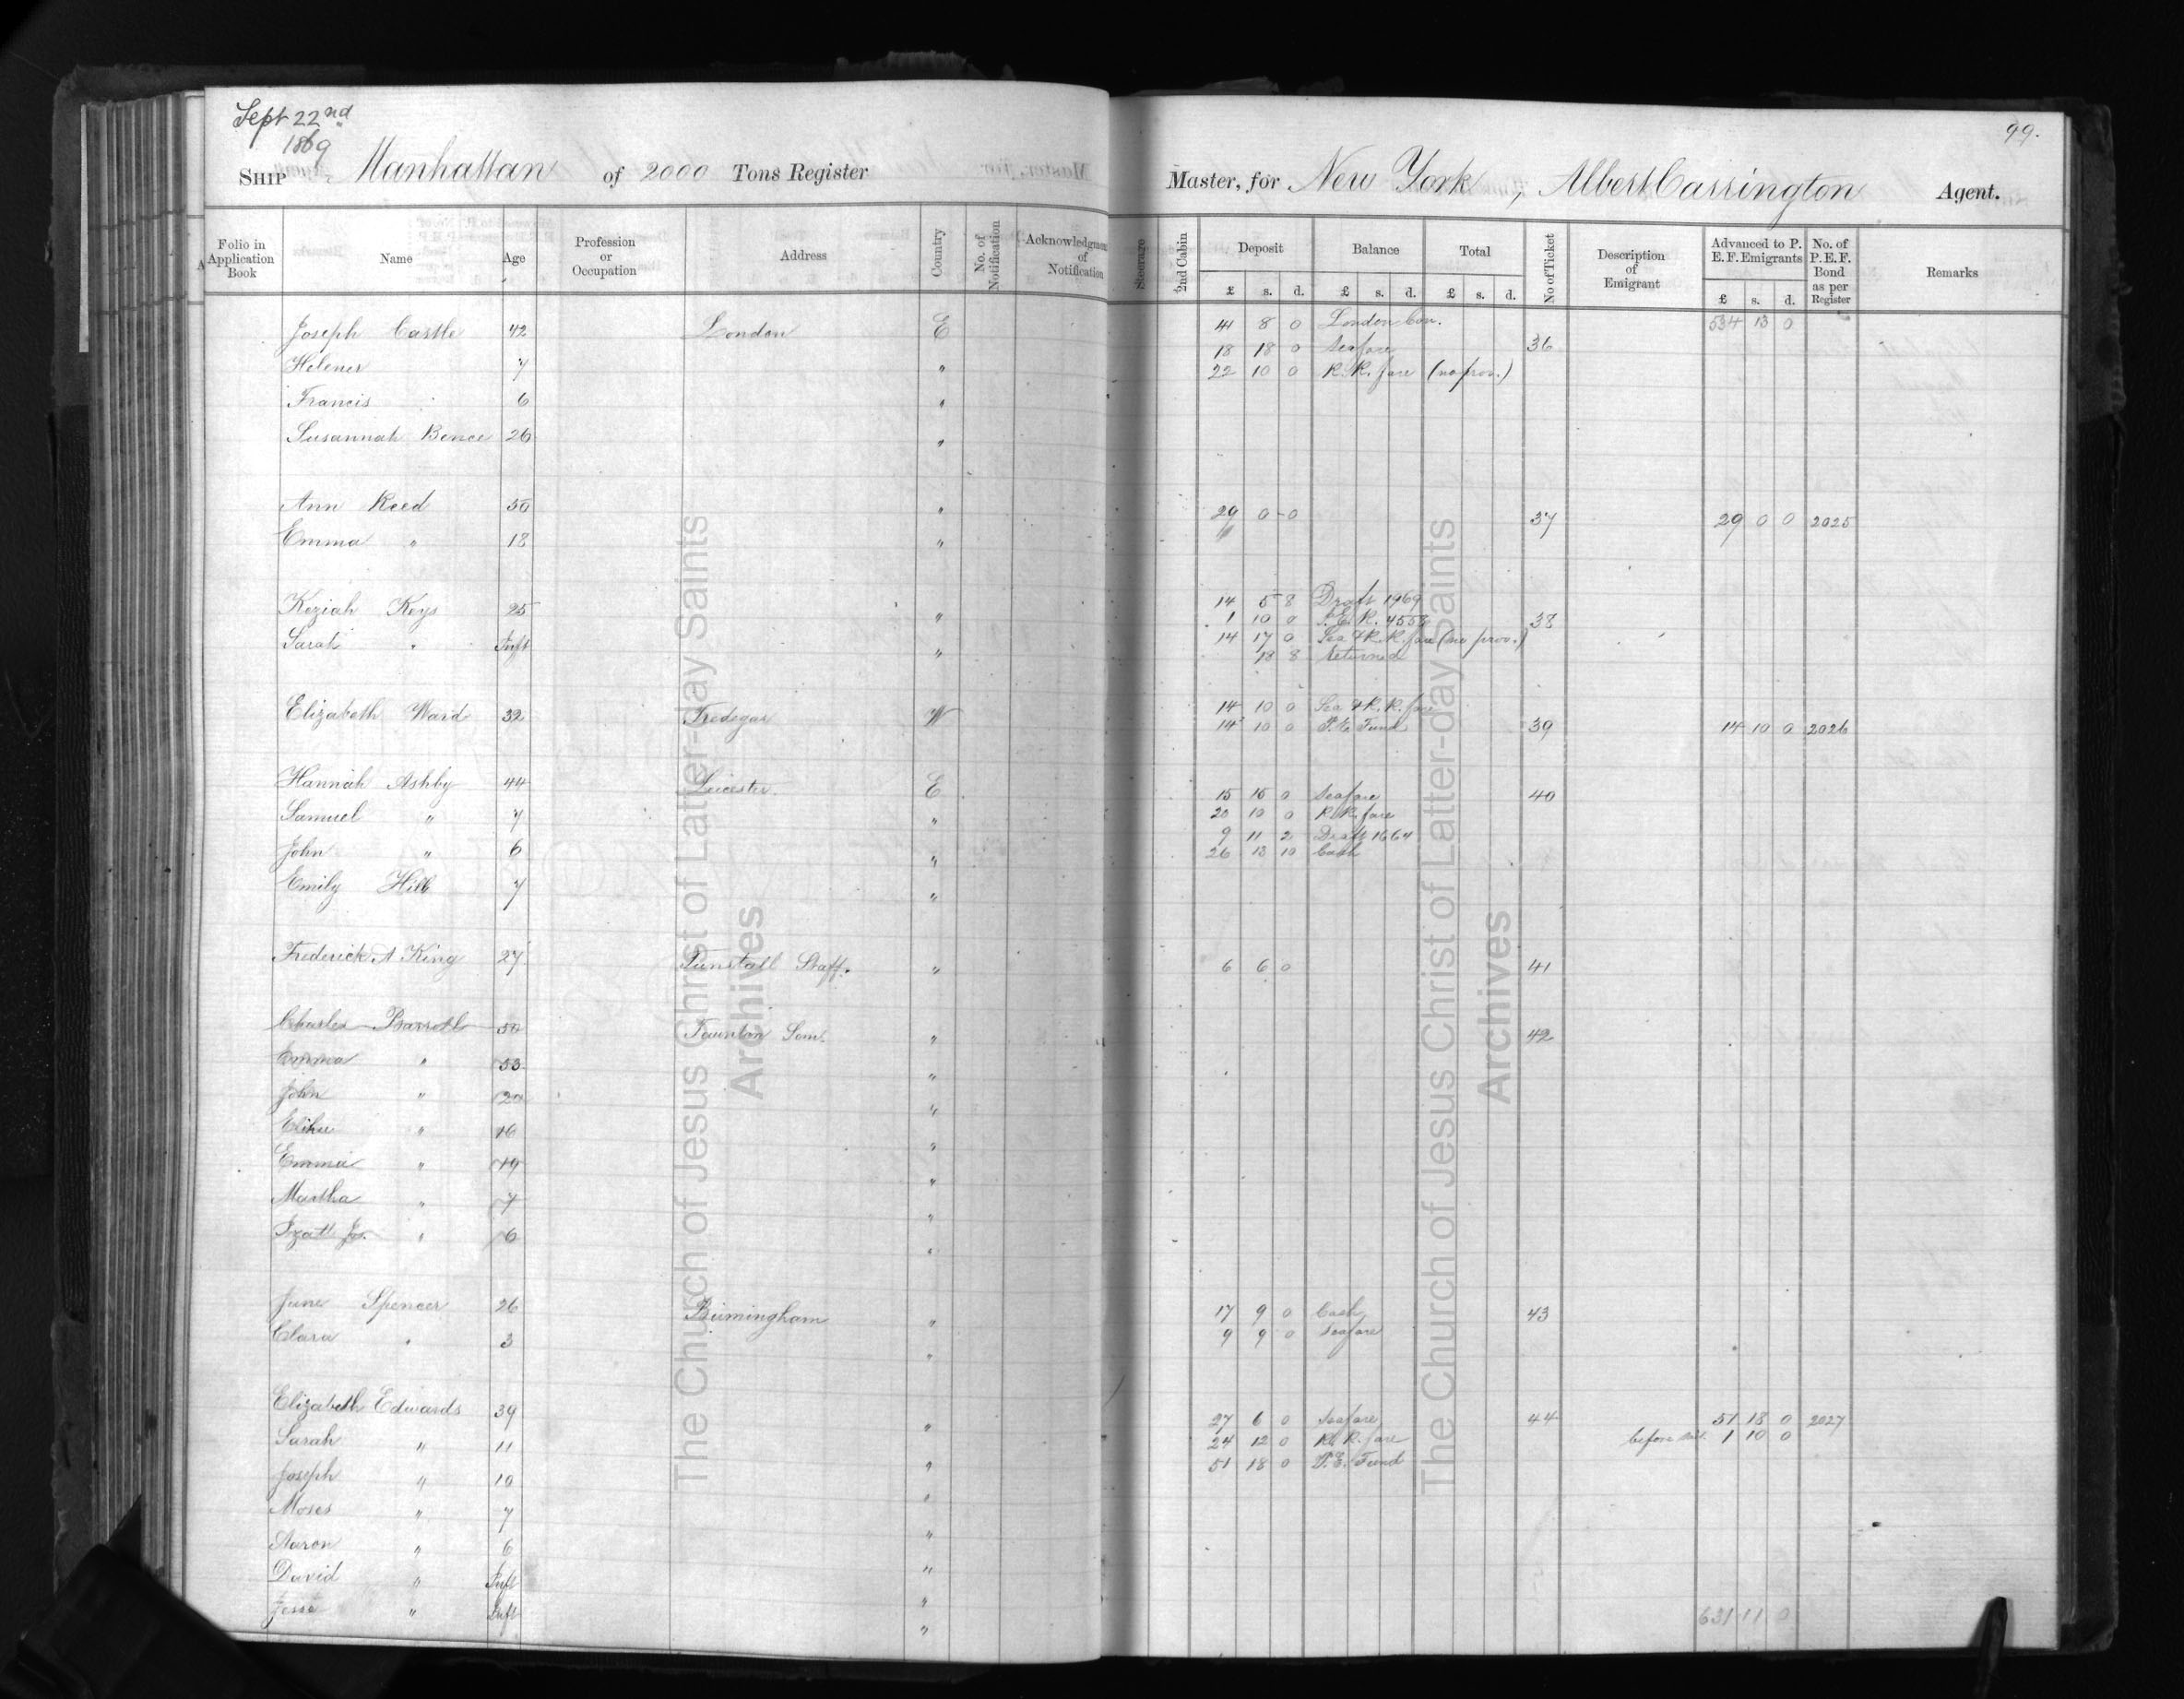 Sept 22nd
1869
99.
SHIP Manhattan of 2000 Tons Register Master, for New York, Albert Carrington Agent.
Folio in Application Book Name Age Profession or Occupation Address Country No. of Notification Acknowledgment of Notification Steerage 2nd Cabin Deposit Balance Total No of Ticket Description of Emigrant Advanced to P. E. F. Emigrants No. of P.E.F. Bond as per Register Remarks
£ s. d. £ s. d. £ s. d. £ s. d.
Joseph Castle 42 London E 41 8 0 London Con. 534 13 0
18 18 0 Seafare 36
Helener 7 " 22 10 0 R.R. fare (no prov.)
Francis 6 "
Susannah Bence 26 "
Ann Reed 50 " 29 0 0 37 29 0 0 2025
Emma " 18 "
Keziah Keys 25 " 14 5 8 Draft 1969
1 10 0 P.E.R. 4558 38
Sarah " Inft " 14 17 0 Sea & R.R. fare (no prov.)
18 8 Returned
Elizabeth Ward 32 Tredegar W 14 10 0 Sea & R.R. fare
14 10 0 P.E. Fund 39 14 10 0 2026
Hannah Ashby 44 Leicester. E 15 15 0 Seafare 40
Samuel " 7 " 20 10 0 R.R. fare
John " 6 " 9 11 2 Draft 1664
26 13 10 Cash
Emily Hill 7 "
Frederick A King 27 Tunstall Staff. " 6 6 0 41
Charles Barrell 50 Taunton Som. " 42
Emma " 53 "
John " 20 "
Elihu " 16 "
Emma " 19 "
Martha " 7 "
Jos. " 6 "
Jane Spencer 26 Birmingham " 17 9 0 Cash 43
Clara " 3 " 9 9 0 Seafare
Elizabeth Edwards 39 " 27 6 0 Seafare 44 51 18 0 2027
Sarah " 11 " 24 12 0 R.R. fare before 1 10 0
Joseph " 10 " 51 18 0 P.E. Fund
Moses " 7 "
Aaron " 6 "
David " Inft "
Jesse " Inft " 631 11 0
The Church of Jesus Christ of Latter-day Saints
Archives
The Church of Jesus Christ of Latter-day Saints
Archives